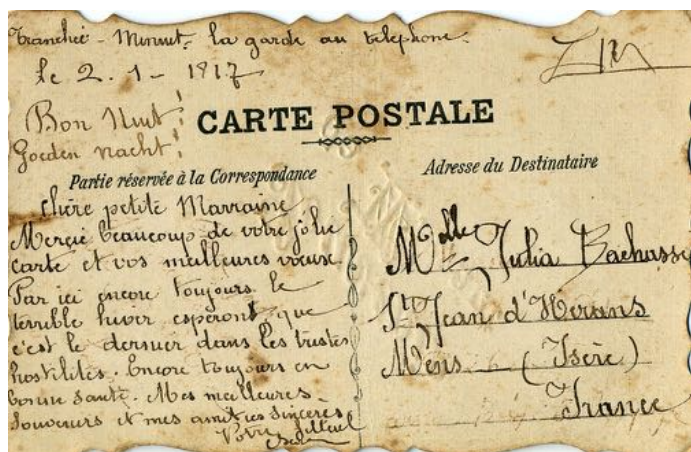 Tranchée - Minuit. la garde au telephone.
le 2. 1 - 1917
Bon Nuit!
Goeden nacht!
CARTE POSTALE
Partie réservée à la Correspondance
Chère petite Marraine
Merçie beaucoup de votre jolie
carte et vos meilleures voeux.
Par ici encore toujours le
terrible hiver esperont que
c'est le dernier dans les tristes
hostilites. Encore toujours en
bonne santé. Mes meilleures
Souvenirs et mes amitiés sinceres
Votre filleul
Adresse du Destinataire
Melle Julia Bachasse
St Jean d'Herans
Mens (Isère)
France